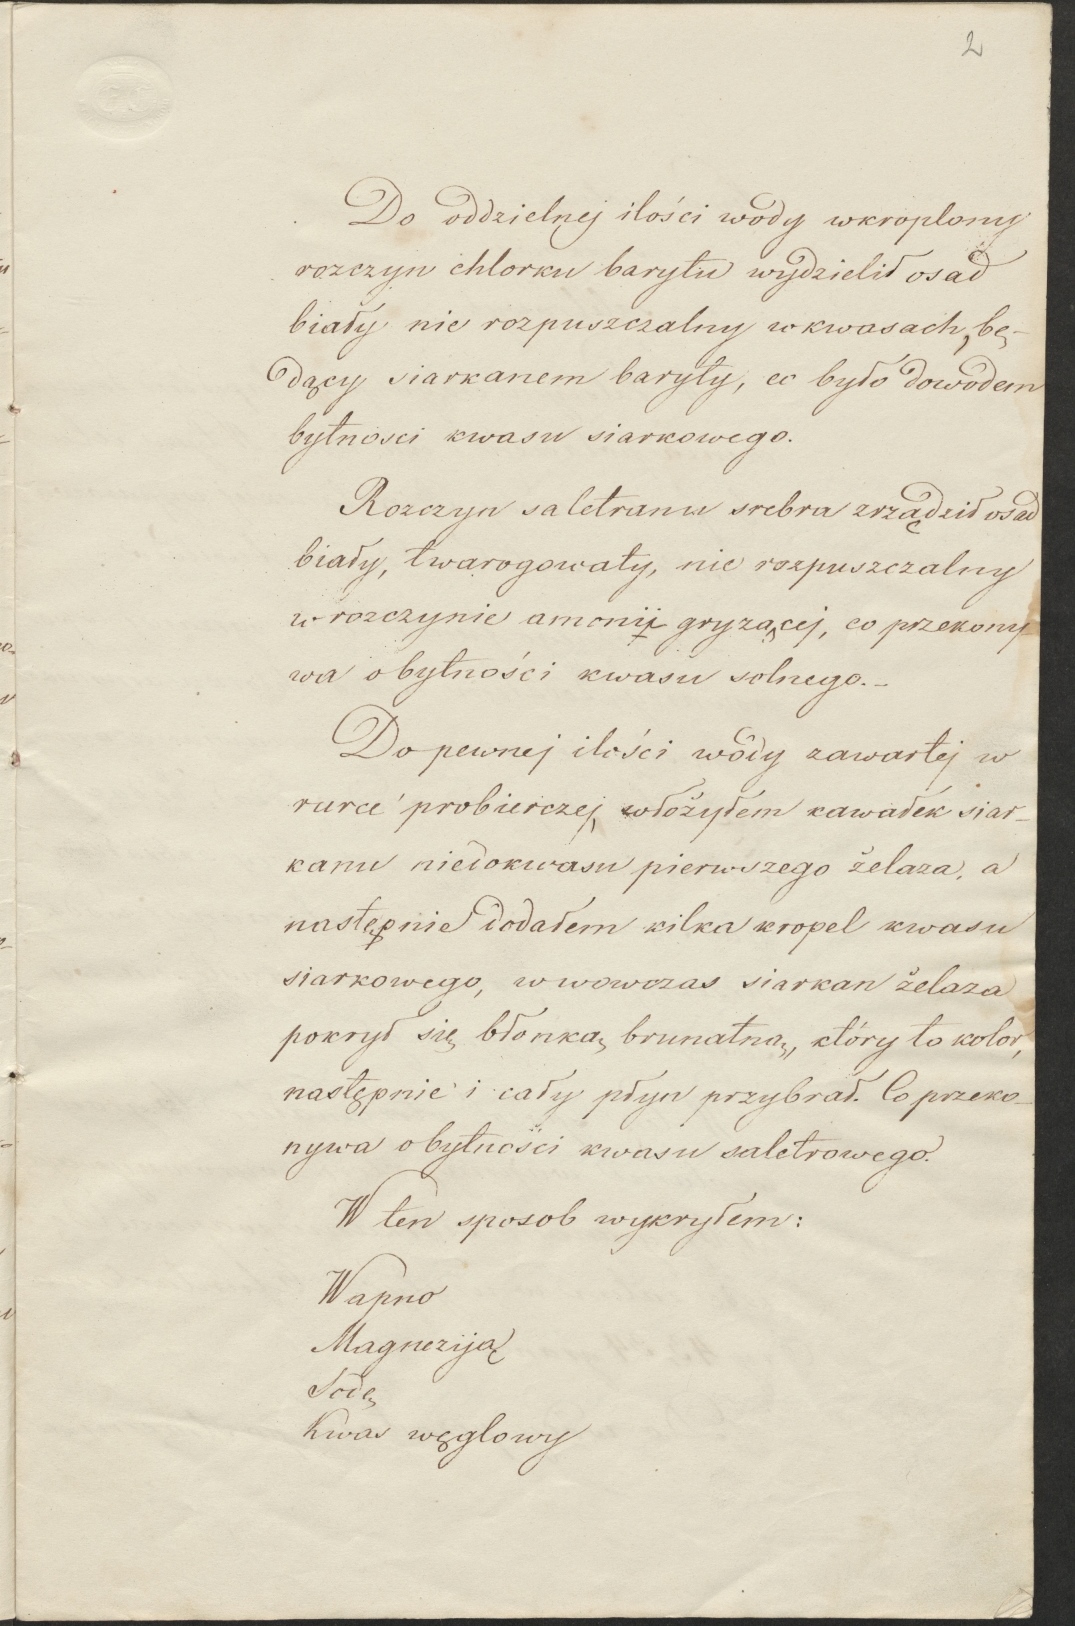 2
Do oddzielnej ilości wody wkroplony
rozczyn chlorku barytu wydzielił osad
biały nie rozpuszczalny w kwasach, bę-
dący siarkanem baryty, co było dowodem
bytnosci kwasu siarkowego.
Rozczyn saletranu srebra zrządził osad
biały, twarogowaty, nie rozpuszczalny
w rozczynie amonii gryzącej, co przekony
wa o bytności kwasu solnego.-
Do pewnej ilości wody zawartej w
rurce probierczej, włożyłem kawałek siar-
kanu niedokwasu pierwszego żelaza, a
następnie dodałem kilka kropel kwasu
siarkowego, wowczas siarkan żelaza
pokrył się błonką brunatną, który to kolor,
następnie i cały płyn przybrał. Co przeko-
nywa o bytności kwasu saletrowego.
W ten sposob wykryłem:
Wapno
Magneziją
Sodę
Kwas węglowy